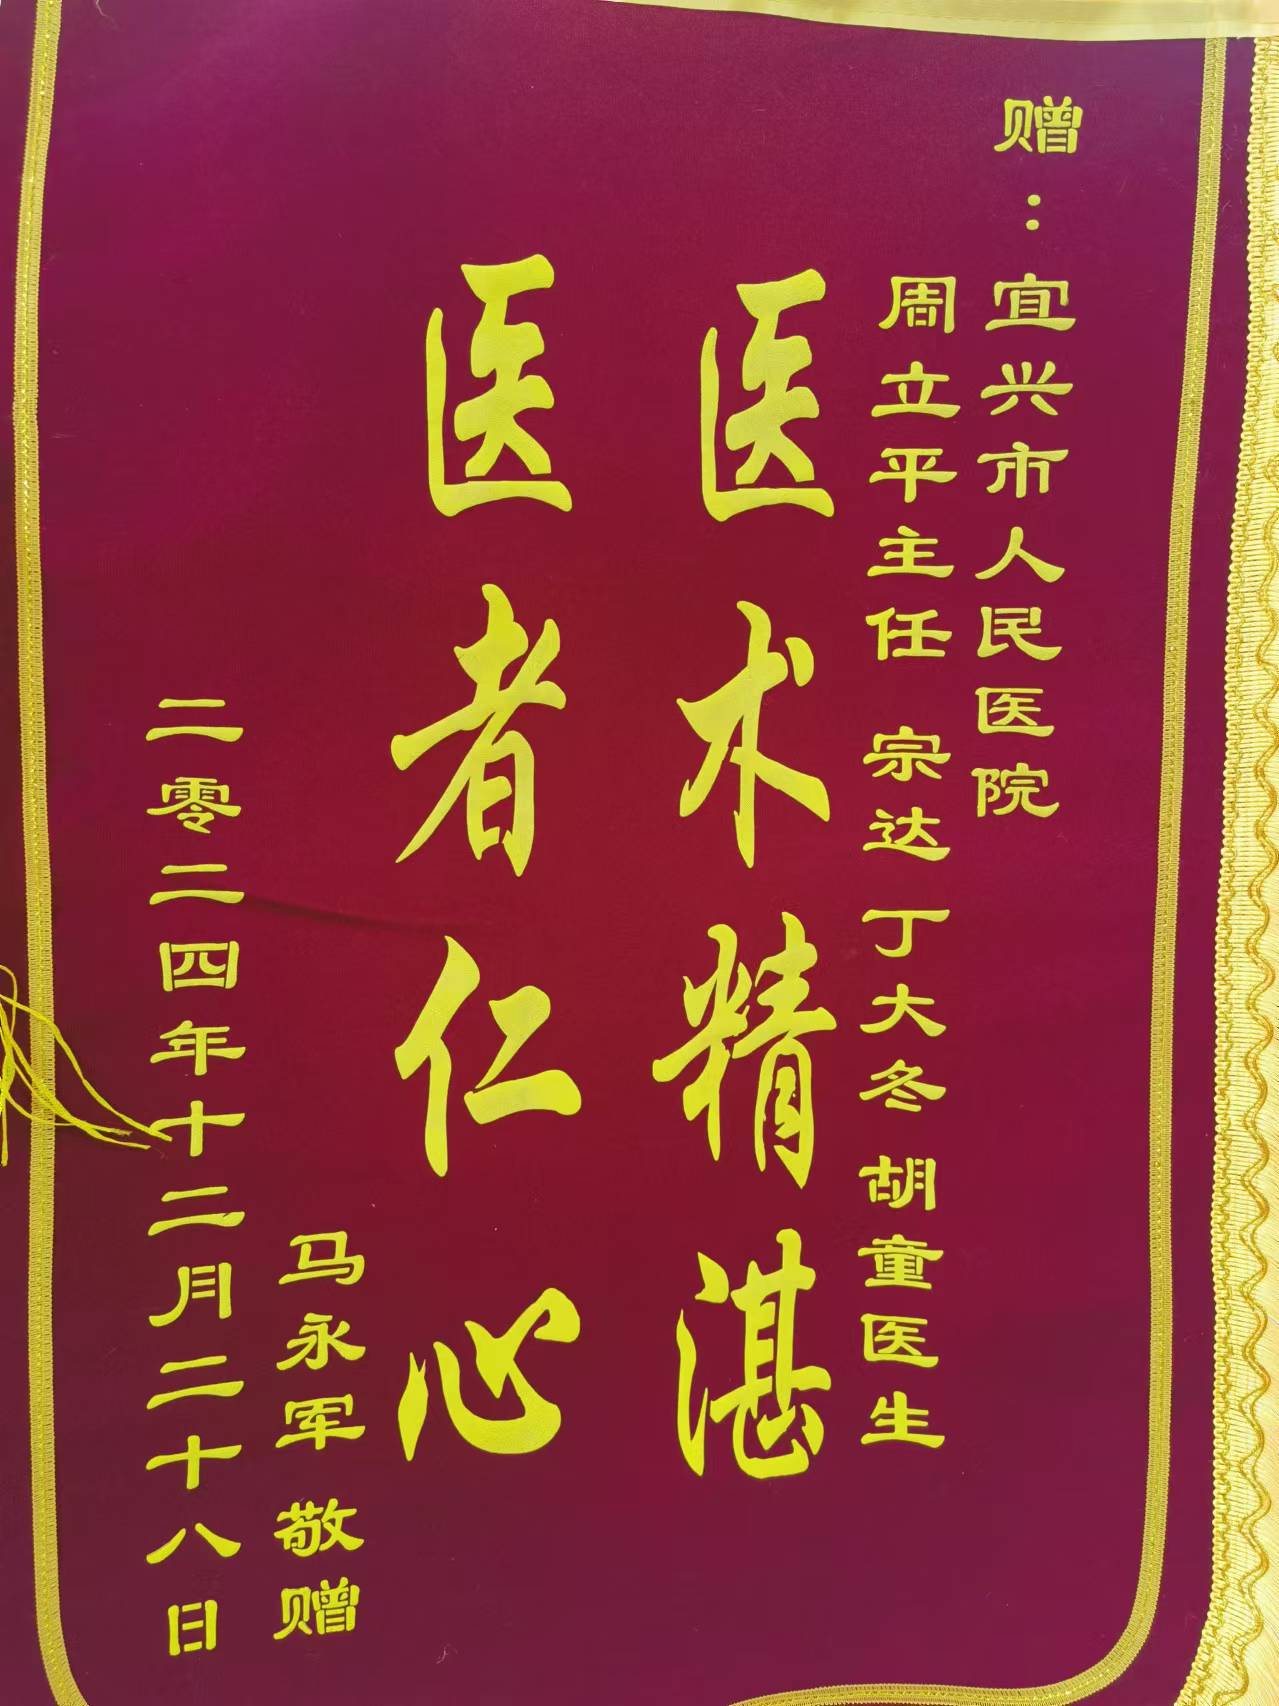 赠：宜兴市人民医院
周立平主任 宗达 丁大冬 胡童医生
医术精湛
医者仁心
马永军 敬赠
二零二四年十二月二十八日